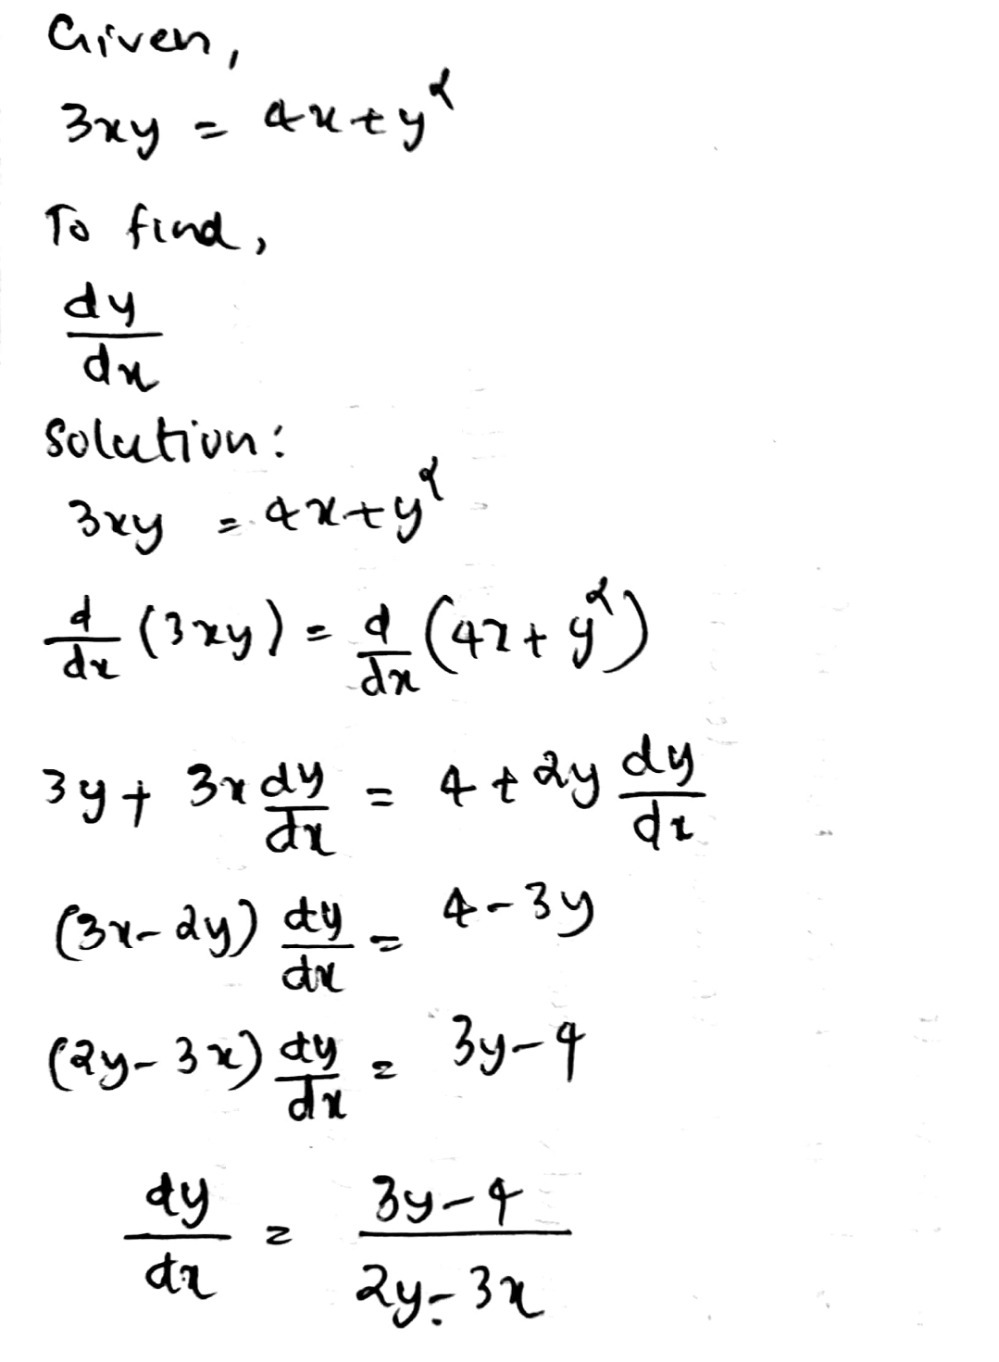 Given,
3xy = 4x+y²
To find,
dy/dx
Solution:
3xy = 4x+y²
d/dx (3xy) = d/dx (4x+y²)
3y + 3x dy/dx = 4 + 2y dy/dx
(3x-2y) dy/dx = 4-3y
(2y-3x) dy/dx = 3y-4
dy/dx = 3y-4/2y-3x